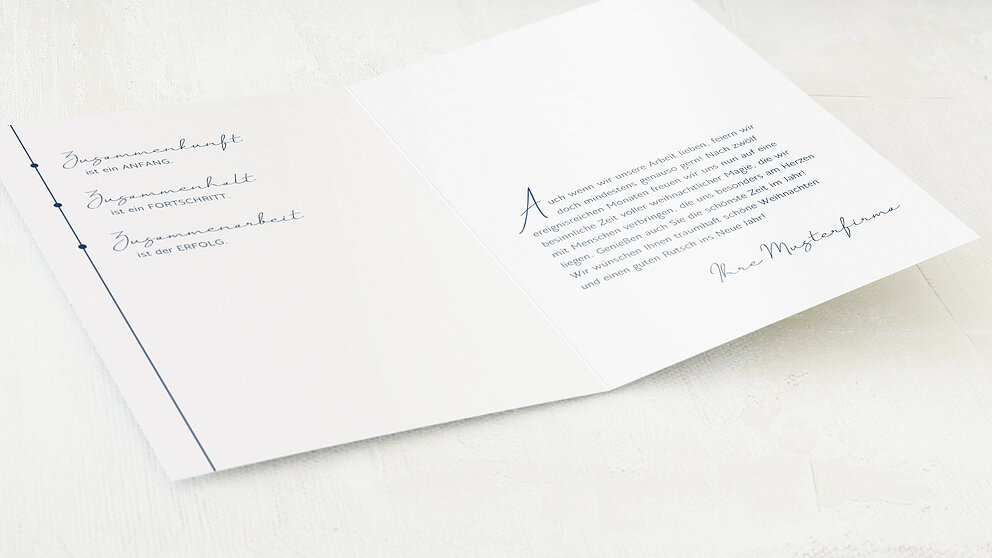 Zusammenkunft
ist ein ANFANG.
Zusammenhalt
ist ein FORTSCHRITT.
Zusammenarbeit
ist der ERFOLG.
Auch wenn wir unsere Arbeit lieben, feiern wir
doch mindestens genauso gern! Nach zwölf
ereignisreichen Monaten freuen wir uns nun auf eine
besinnliche Zeit voller weihnachtlicher Magie, die wir
mit Menschen verbringen, die uns besonders am Herzen
liegen. Genießen auch Sie die schönste Zeit im Jahr!
Wir wünschen Ihnen traumhaft schöne Weihnachten
und einen guten Rutsch ins Neue Jahr!
Ihre Musterfirma